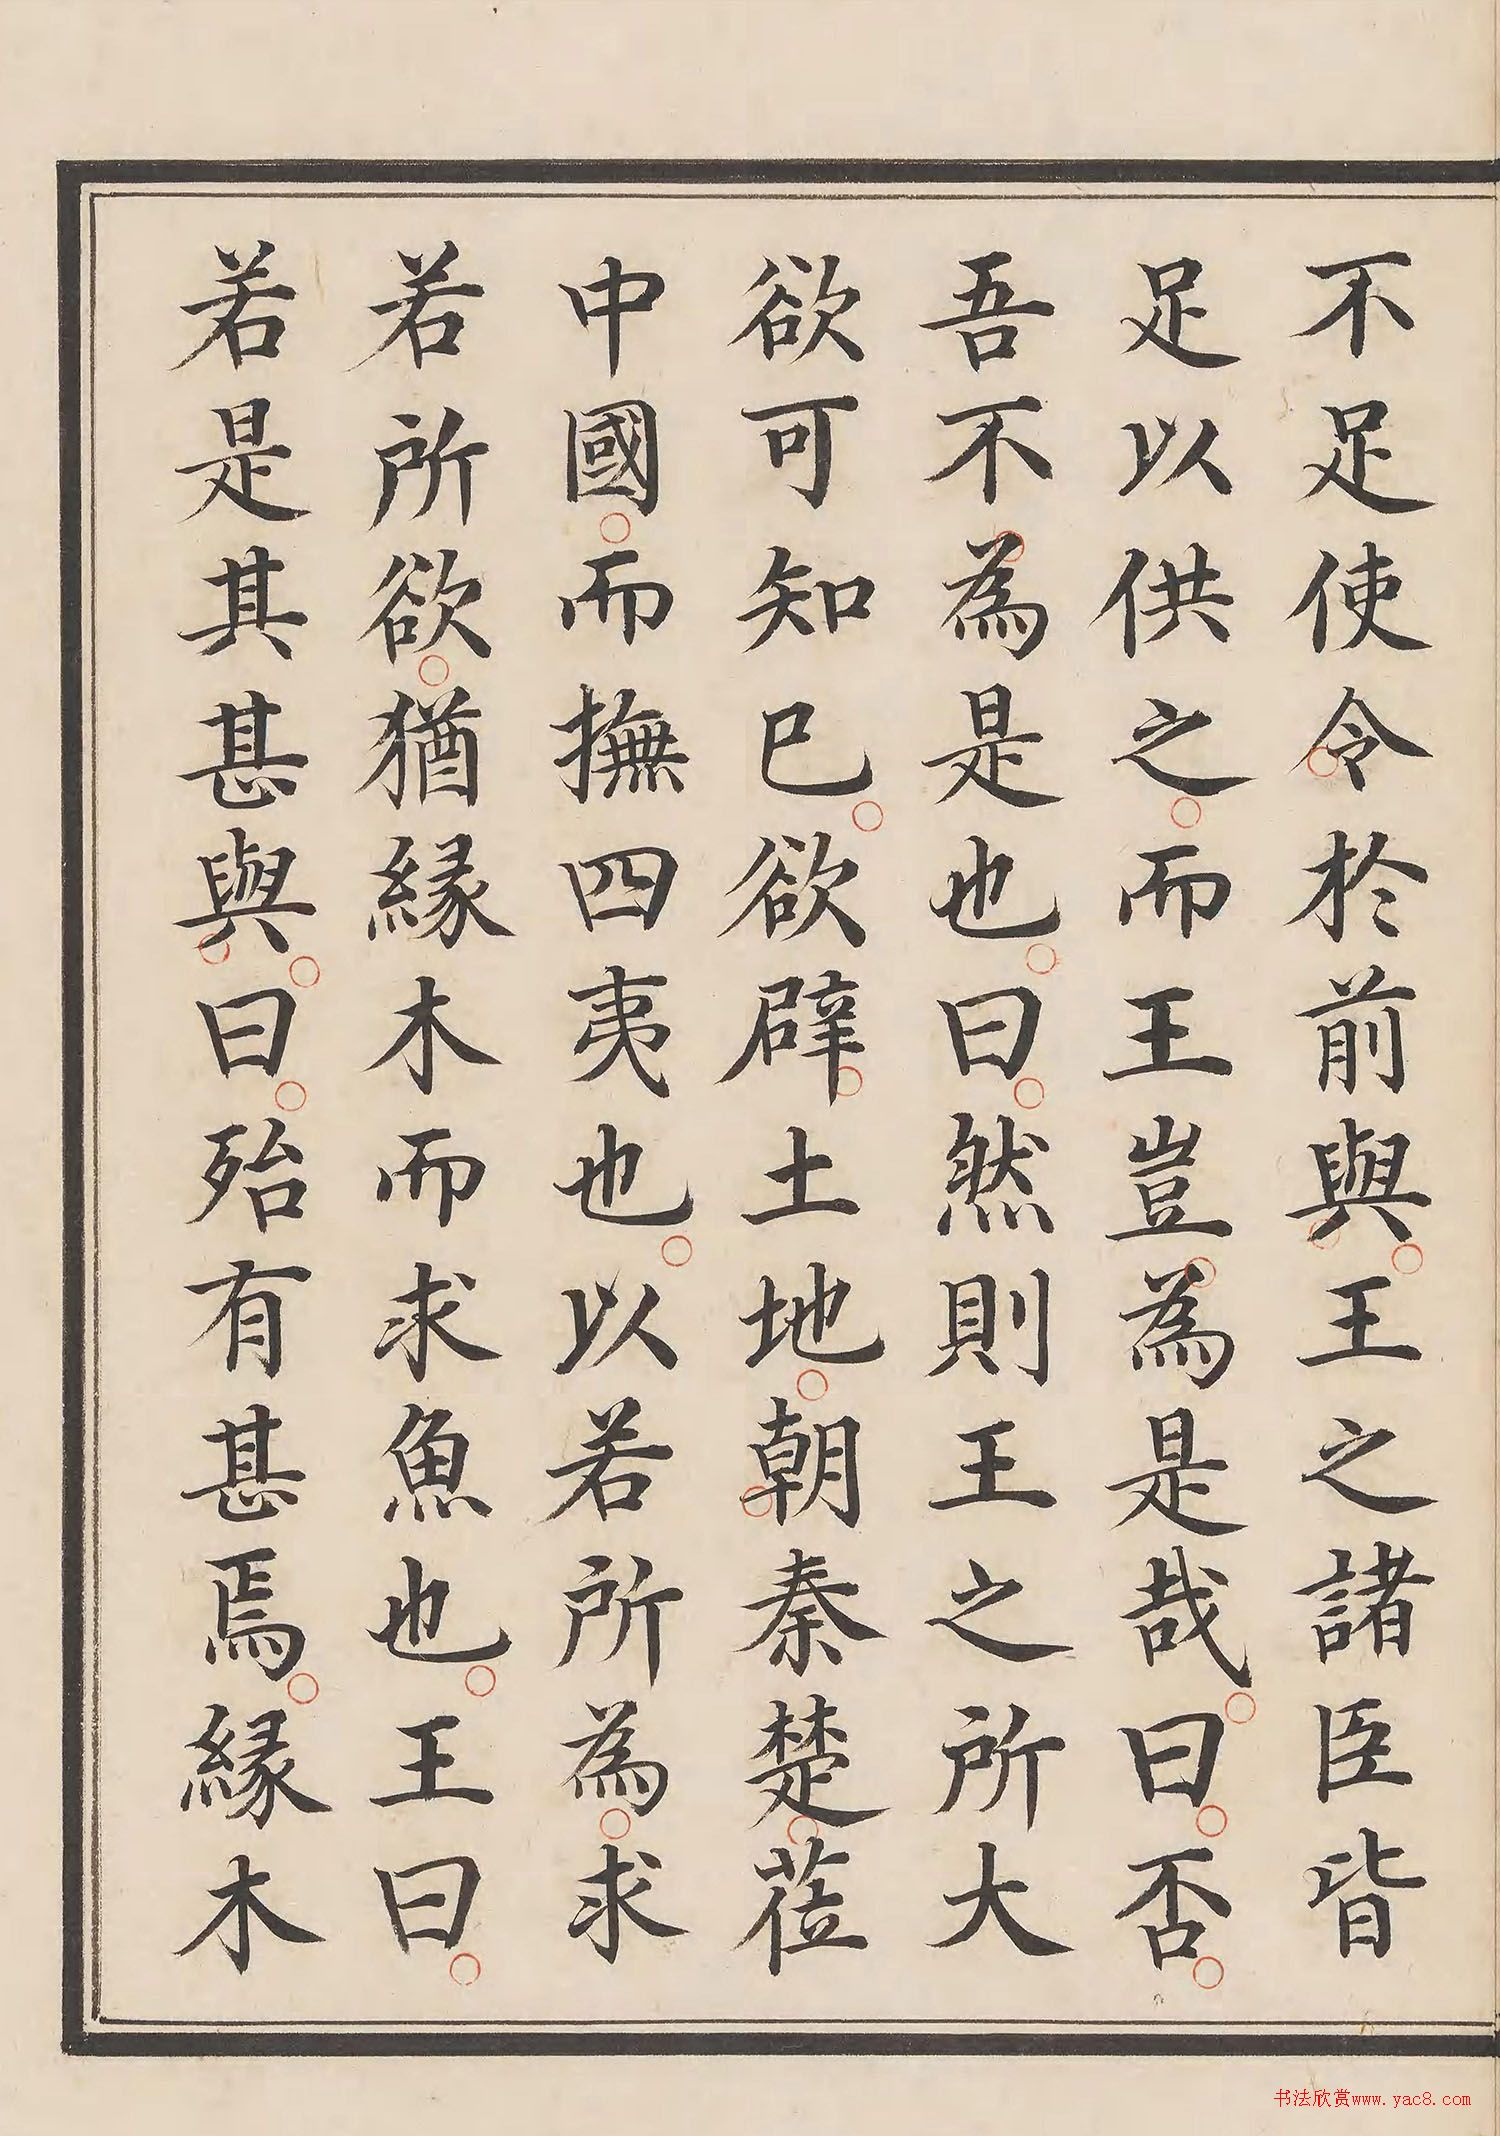 不足使令於前與王之諸臣皆
足以供之而王豈為是哉曰否
吾不為是也曰然則王之所大
欲可知已欲辟土地朝秦楚莅
中國而撫四夷也以若所為求
若所欲猶緣木而求魚也王曰
若是其甚與曰殆有甚焉緣木
书法欣赏www.yac8.com